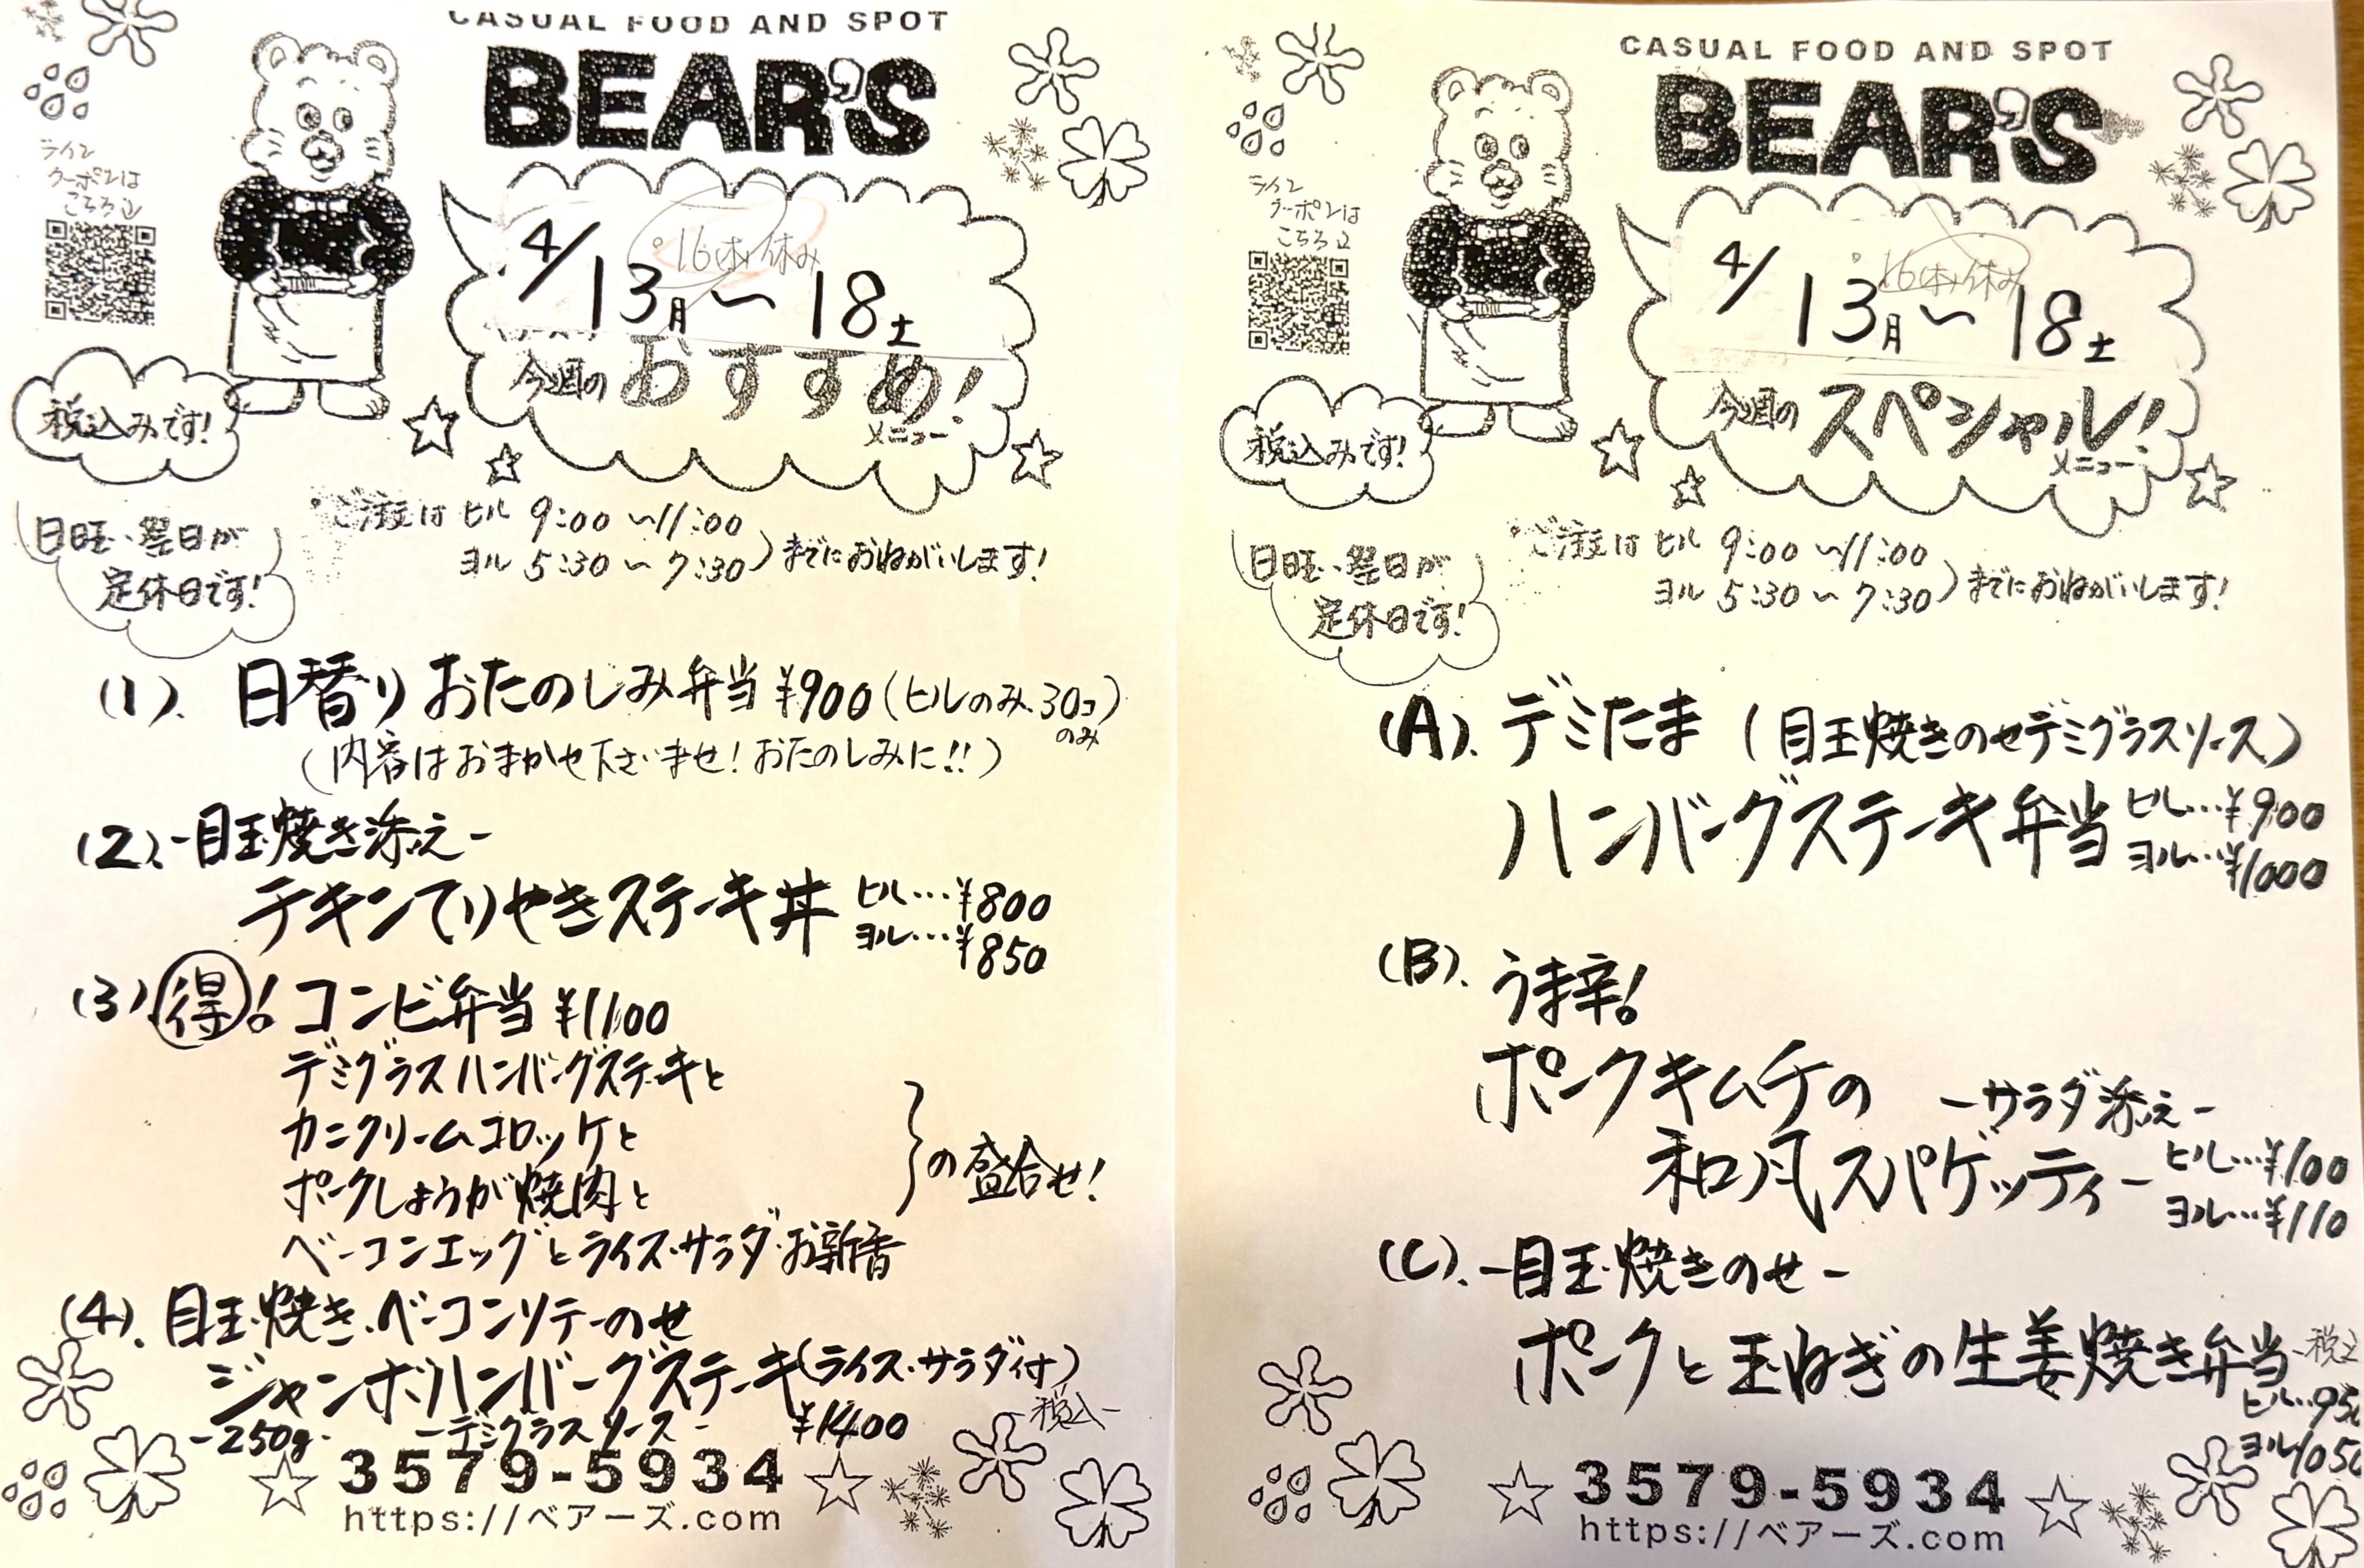 CASUAL FOOD AND SPOT
BEAR'S
ライン
クーポンは
こちら
4/13月〜18土
16(木)休み
今週のおすすめ!
メニュー
税込みです!
日旺、翌日が
定休日です!
ご注文は ヒル 9:00〜11:00
ヨル 5:30〜7:30)までにおねがいします!
(1). 日替り おたのしみ弁当 ¥900(ヒルのみ.30コ)
のみ
(内容はおまかせ下さいませ!おたのしみに!!)
(2).-目玉焼き添え-
チキンてりやきステーキ丼 ヒル…¥800
ヨル…¥850
(3).得!コンビ弁当 ¥1100
デミグラスハンバーグステーキと
カニクリームコロッケと
ポークしょうが焼肉と
ベーコンエッグとライス・サラダ・お新香
}の盛合せ!
(4).目玉焼き.ベーコンソテーのせ
ジャンボハンバーグステーキ(ライス・サラダ付)
-250g- -デミグラスソース- ¥1400
-税込-
3579-5934
https://ベアーズ.com
CASUAL FOOD AND SPOT
BEAR'S
ライン
クーポンは
こちら
4/13月〜18土
16(木)休み
今週のスペシャル!
メニュー
税込みです!
日旺、翌日が
定休日です!
ご注文は ヒル 9:00〜11:00
ヨル 5:30〜7:30)までにおねがいします!
(A). デミたま (目玉焼きのせデミグラスソース)
ハンバーグステーキ弁当 ヒル…¥900
ヨル…¥1000
(B). うま辛!
ポークキムチの -サラダ添え-
和風スパゲッティー ヒル…¥100
ヨル…¥110
(C).-目玉焼きのせ-
ポークと玉ねぎの生姜焼き弁当 -税込
ヒル…95
ヨル105
3579-5934
https://ベアーズ.com